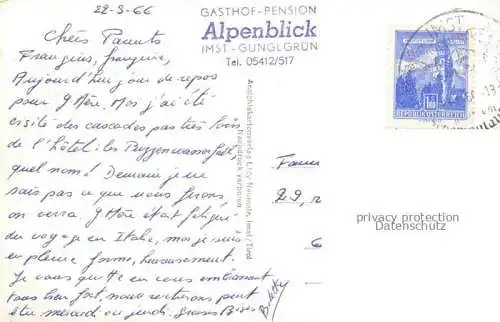 22-3-66
GASTHOF-PENSION
Alpenblick
IMST - GUNGLGRÜN
Tel. 05412/517
REPUBLIK ÖSTERREICH
Chers Parents
Françoise, Françoise,
Aujourd'hui jour de repos
pour G Mère. Moi j'ai été
visité des cascades pas très loin
de l'hôtel: les
quel nom! Demain je ne
sais pas ce que nous ferons,
on verra. G Mère était fatiguée
du voyage en Italie, moi je suis
en pleine forme, heureusement.
Je vous quitte en vous embrassant
tous bien fort, nous rentrerons peut
être mercredi ou jeudi. Grosses Bises
Ansichtskartenverlag Lilly Neurode, Imst/Tirol
Nachdruck verboten
29,
privacy protection
Datenschutz